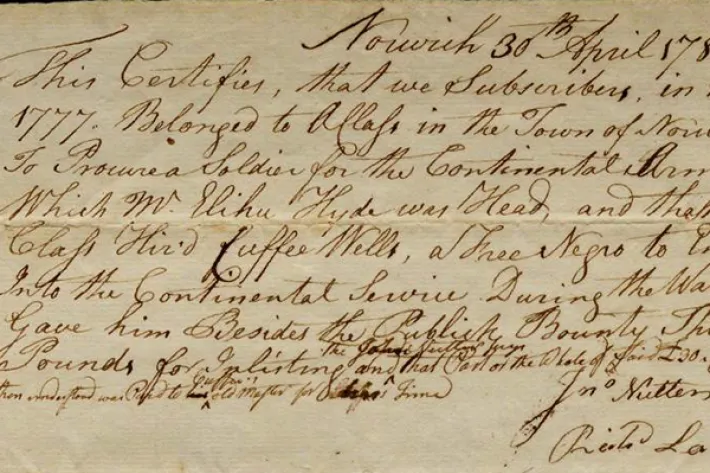 Norwich 30th April 178
This Certifies, that we Subscribers, in
1777. Belonged to A Class in the Town of Norw
To Procure a Soldier for the Continental Arm
Which Mr. Elihu Hyde was Head, and that
Class Hir'd Cuffee Wells, a Free Negro to En
Into the Continental Service During the Wa
Gave him Besides the Publick Bounty Th
the
Pounds for Inlisting and that Part of the Whole of said £30.
understood was Paid to Cuffee's old Master for Time
Jno. Nutters
Richd. La